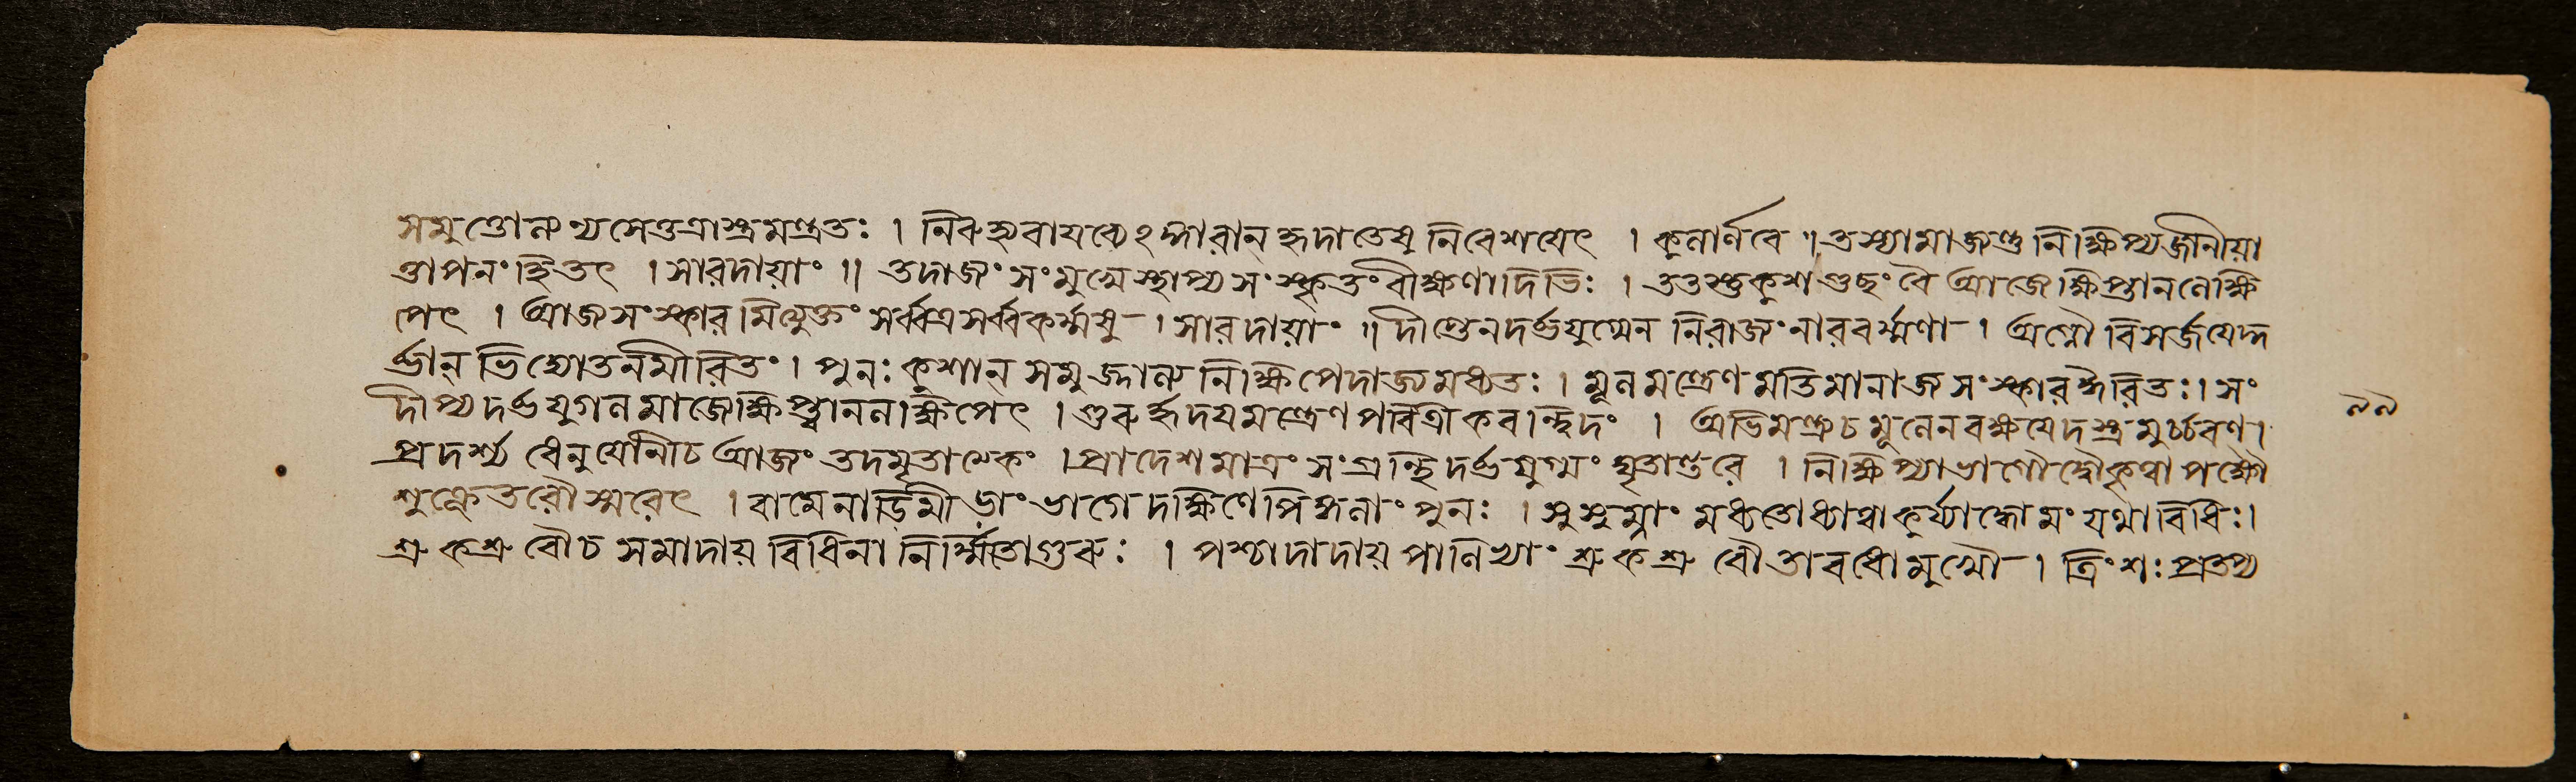 সমুত্তোনথ্যসেত্তত্রাস্ত্রমন্ত্রতঃ । নিরুহ্যবাযব্যেঽঙ্গারান্ হৃদাতেষুনিবেশযেৎ । কুনার্ণবে ॥ তস্যামাজ্যন্তু নিক্ষিপ্যজানীয়া
ত্তাপনংস্থিতৎ । সারদায়াং ॥ তদাজ্যংসংমুখেস্থাপ্যসংস্কৃতংবীক্ষণাদিভিঃ । ততস্তুকুশগুছংবৈ আজেক্ষিপ্তাননেক্ষি
পেৎ । আজসংস্কারমিত্যুক্তংসর্ব্বত্রসর্ব্বকর্ম্মষু । সারদায়াং ॥ দীপ্তেনদর্ভযুগ্মেন নিরাজংনারবর্ম্মণা । অগ্নৌ বিসর্জযেদ্দ
র্ভান্ ভিদ্যোতনমীরিতং । পুনঃ কুশান্ সমুজ্জাল্য নিক্ষিপেদাজ্যমধ্যতঃ । মূনমন্ত্রেণমতিমানাজসংস্কারঈরিতঃ । সং
দীপ্যদর্ভযুগনমাজেক্ষিপ্ত্বাননক্ষিপেৎ । গুরুর্হৃদযমন্ত্রেণ পবিত্রীকরণন্ত্বিদং । অভিমন্ত্র্যচমূনেনরক্ষযেদস্ত্রমুচ্চরণ ।
প্রদর্শ্য ধেনুযোনিচ আজং তদমৃতাত্মকং । প্রাদেশমাত্রং সংগ্রন্থিদর্ভযুগ্মং ঘৃতান্তরে । নিক্ষিপ্যাভাগৌদ্বৌকৃত্বাপক্ষৌ
শুক্লেতরৌস্মরেৎ । বামেনাডিমীড়াংভাগে দক্ষিণেপিঙ্গনাংপুনঃ । সুসুম্নাং মধ্যতোধ্যাত্বাকুর্য্যাদ্ধোমং যথাবিধিঃ ।
শ্রুকশ্রুবৌচ সমাদায় বিধিনা নির্ম্মিতোগুরুঃ । পশ্চাদাদায় পাণিভ্যাং শ্রুকশ্রুবৌতাবধোমুখৌ । ত্রিংশঃ প্রতপ্য
৯৯